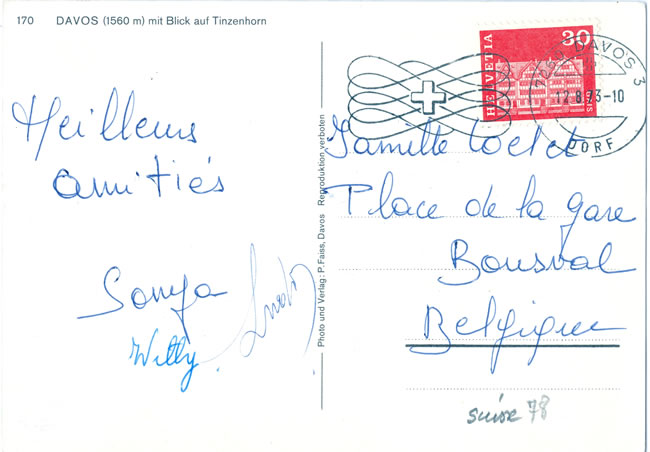 170 DAVOS (1560 m) mit Blick auf Tinzenhorn
Meilleurs
amitiés
Sonja
Willy
Photo und Verlag: P. Faiss, Davos Reproduktion verboten
HELVETIA
30
7260 DAVOS 3
12.8.73-10
DORF
Famille
Place de la gare
Bousval
Belgique
suisse 78